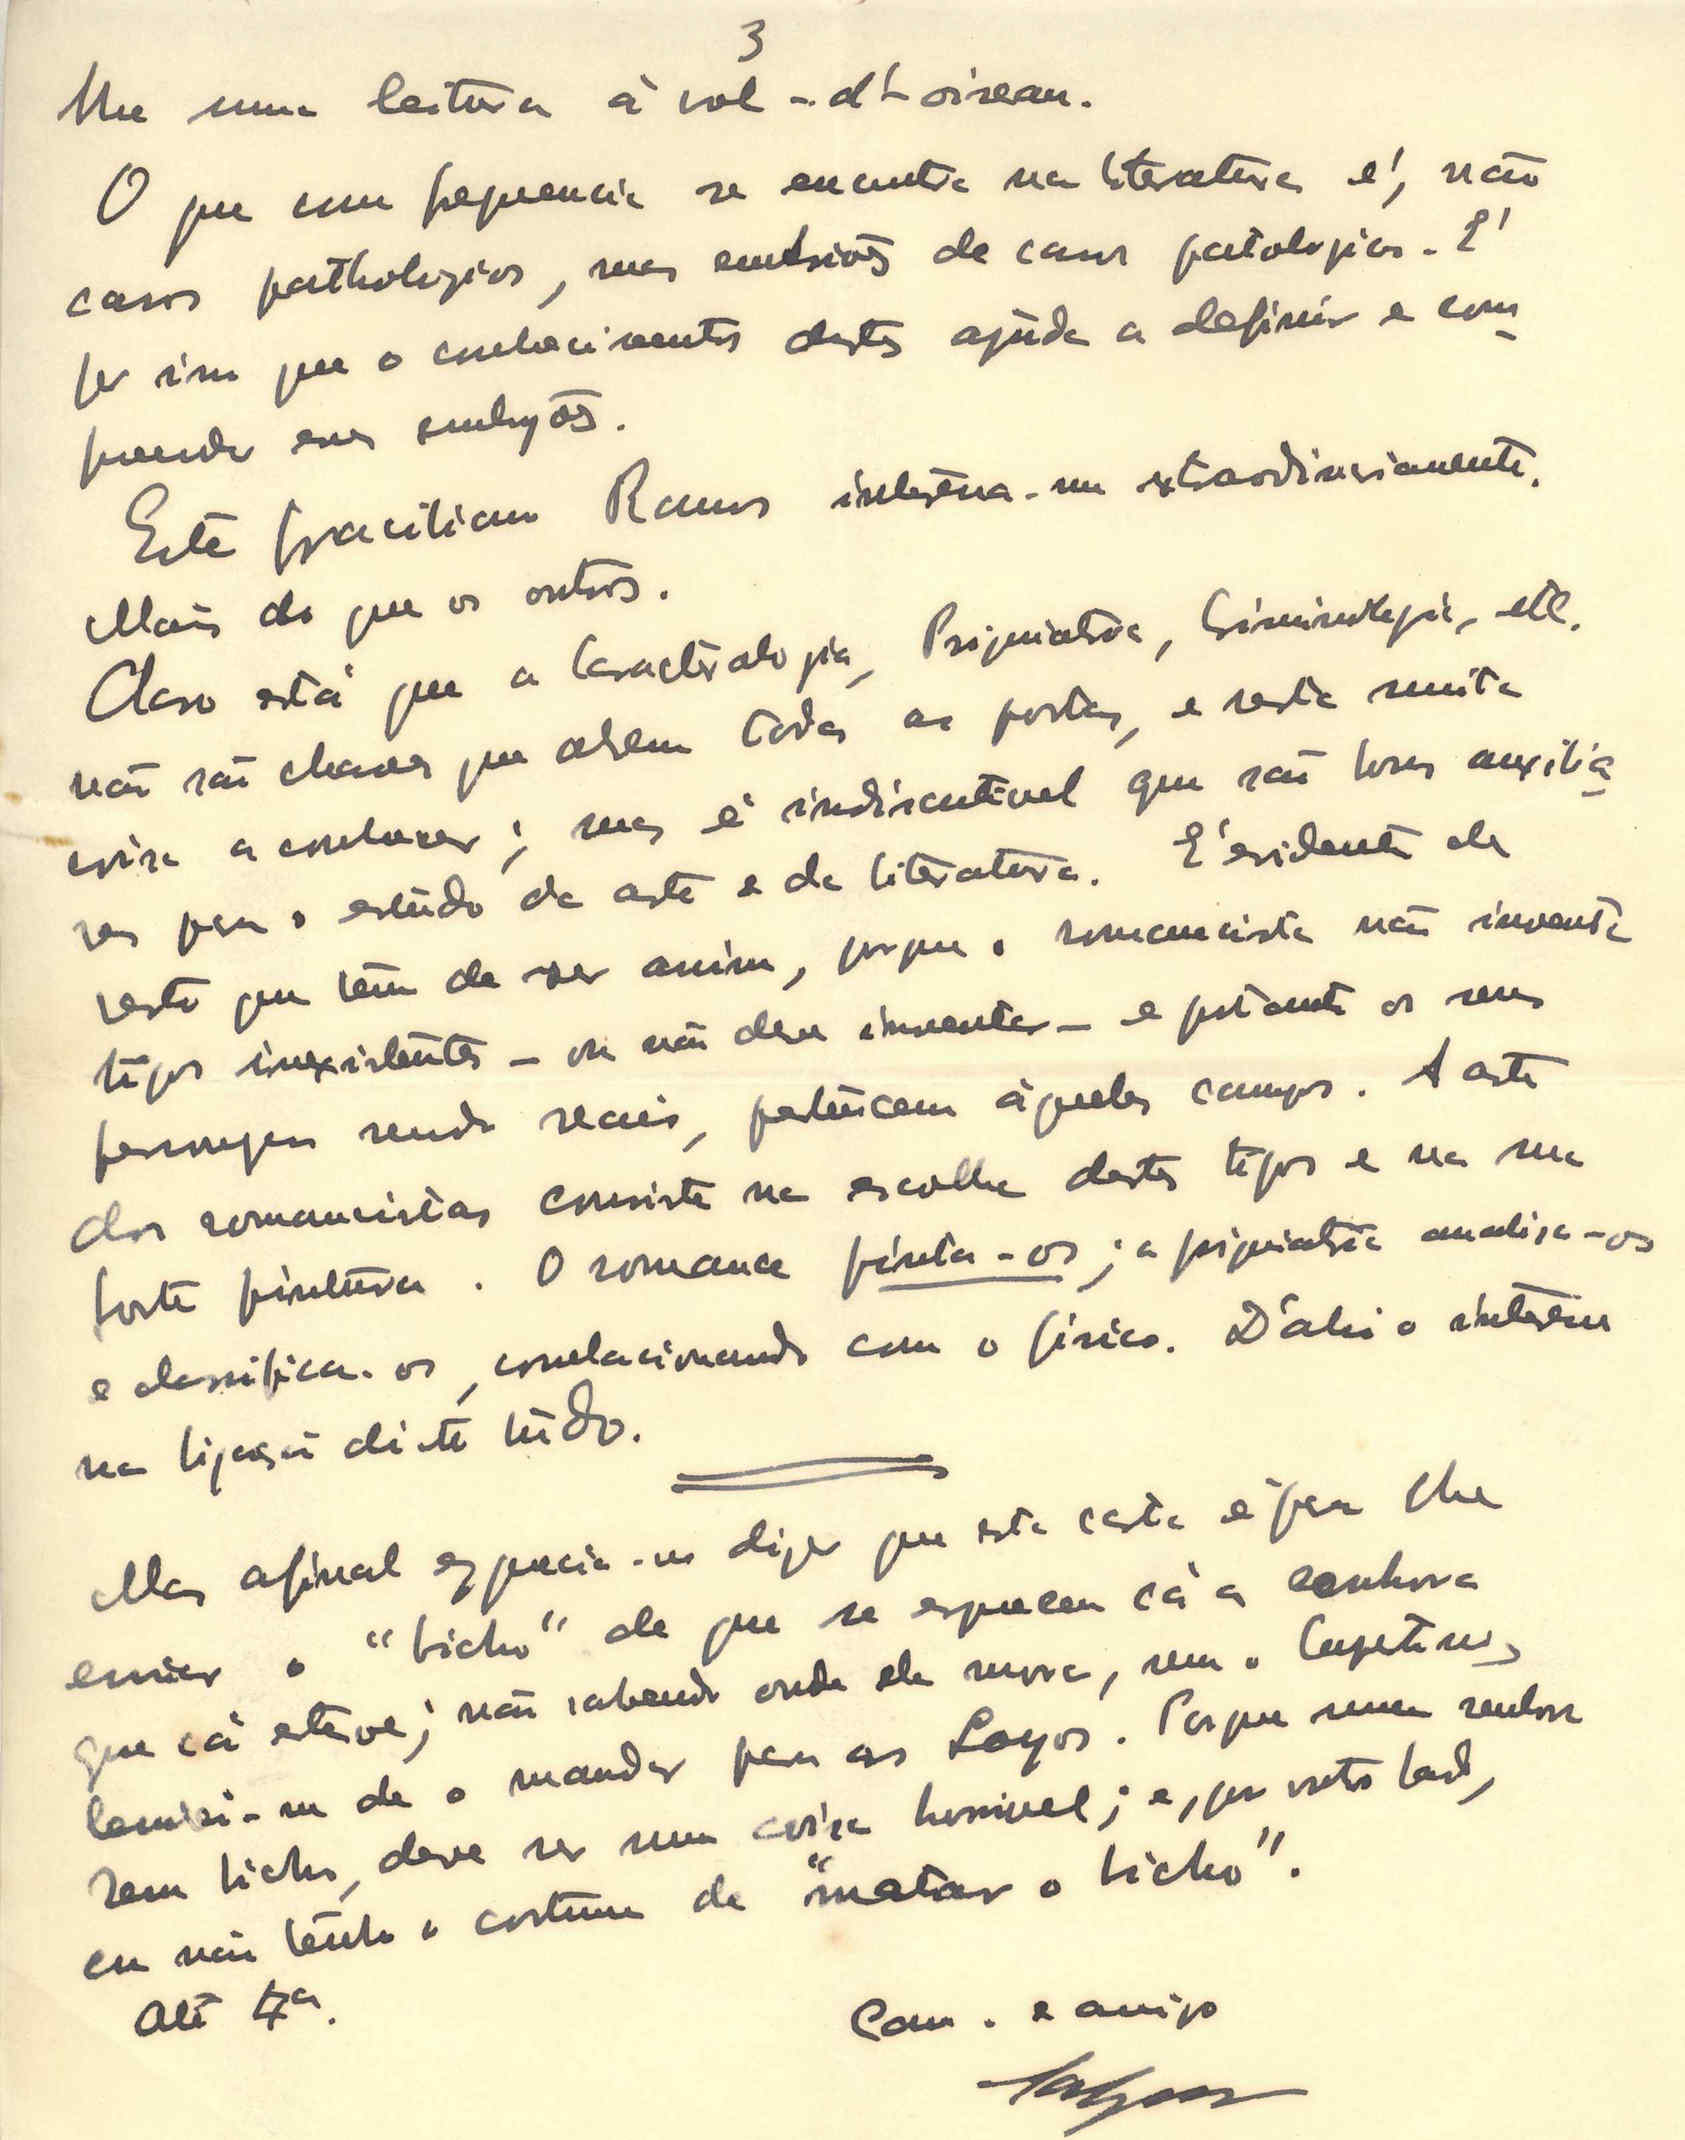 3
lhe uma leitura à vol-d'oiseau.
O que com frequencia se encontra na literatura é, não
casos pathologicos, mas embriões de casos patologicos. É
por isso que o conhecimento destes ajuda a definir e com-
preender esses embryões.
Este Graciliano Ramos interessa-me extraordinariamente.
Mais do que os outros.
Claro está que a Caracterologia, Psiquiatria, Criminologia, etc.
não são chaves que abrem todas as portas, e resta muita
coisa a conhecer; mas é indiscutivel que são bons auxilia-
res para o estudo da arte e da literatura. É evidente de
resto que têm de ser assim, porque o romancista não inventa
tipos inexistentes - ou não deve inventar - e portanto os seus
personagens sendo reais, pertencem àqueles campos. A arte
dos romancistas consiste na escolha destes tipos e na sua
forte pintura. O romance pinta-os; a psiquiatria analisa-os
e classifica-os, correlacionando com o fisico. D'ahi o interesse
na ligação disto tudo.
Mas afinal esquecia-me dizer que esta carta é para lhe
enviar o "bicho" de que se esqueceu cá a senhora
que cá esteve; não sabendo onde ela mora, nem o Capetinos,
lembrei-me de o mandar para as Lagos. Porque uma senhora
sem bicho, deve ser uma coisa horrivel; e, por outro lado,
eu não tenho o costume de "matar o bicho".
Até 4ª.
Cam. e amigo